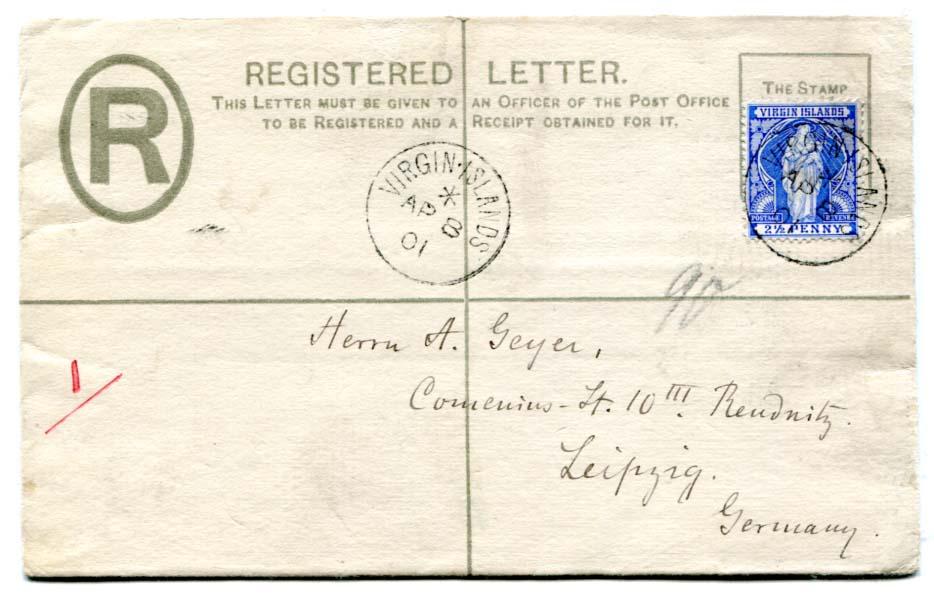 R
REGISTERED LETTER.
THIS LETTER MUST BE GIVEN TO AN OFFICER OF THE POST OFFICE
TO BE REGISTERED AND A RECEIPT OBTAINED FOR IT.
THE STAMP
VIRGIN ISLANDS
POSTAGE REVENUE
2½ PENNY
VIRGIN ISLANDS
AP 8
01
VIRGIN·ISLANDS
AP 8
01
Herrn A. Geyer,
Comenius-St. 10 III. Reudnitz.
Leipzig.
Germany.
1